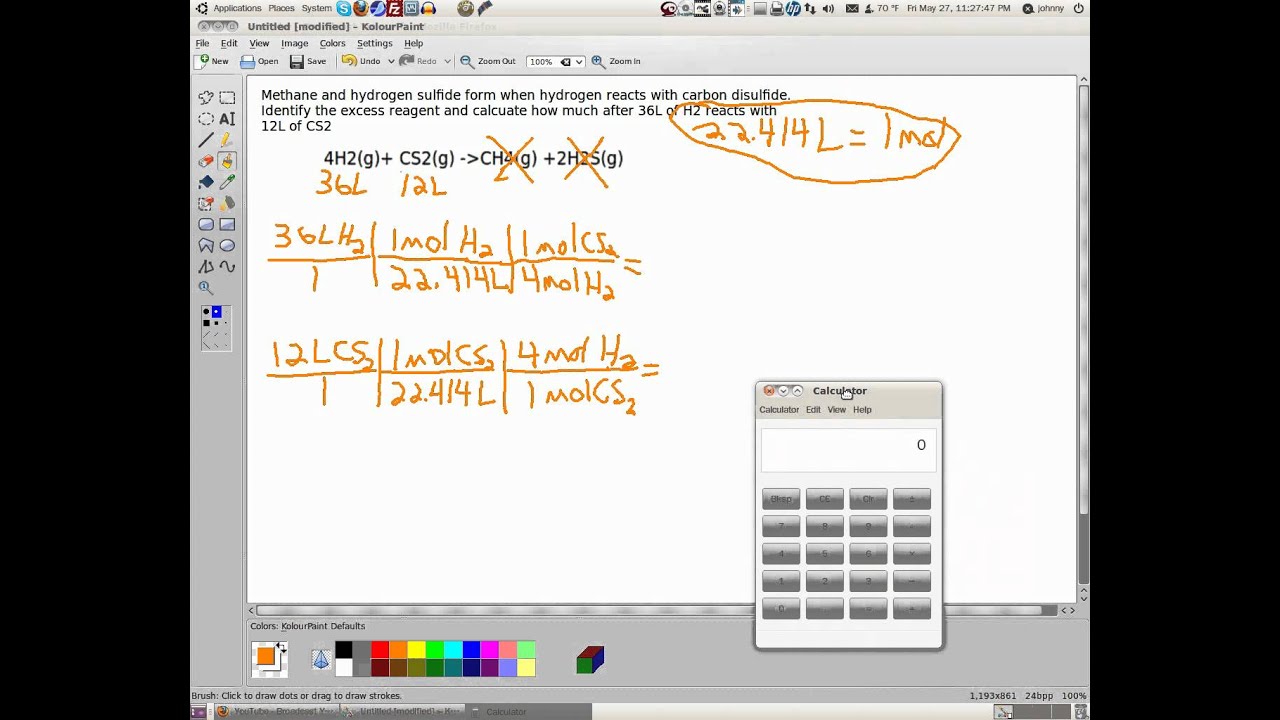 Applications Places System 70 °F Fri May 27, 11:27:47 PM johnny
Untitled [modified] – KolourPaint
File Edit View Image Colors Settings Help
New Open Save Undo Redo Zoom Out 100% Zoom In
Methane and hydrogen sulfide form when hydrogen reacts with carbon disulfide.
Identify the excess reagent and calcuate how much after 36L of H2 reacts with
12L of CS2
22.414L = 1mol
4H2(g)+ CS2(g) ->CH4(g) +2H2S(g)
36L 12L
36LH2 1mol H2 1molCS2 =
1 22.414L 4molH2
12LCS2 1molCS2 4mol H2 =
1 22.414L 1molCS2
Calculator
Calculator Edit View Help
0
Bksp CE Clr ±
7 8 9
4 5 6
1 2 3
0
Colors: KolourPaint Defaults
Brush: Click to draw dots or drag to draw strokes. 1,193x861 24bpp 100%
YouTube - Broadcast Y... Untitled [modified] – K... Calculator